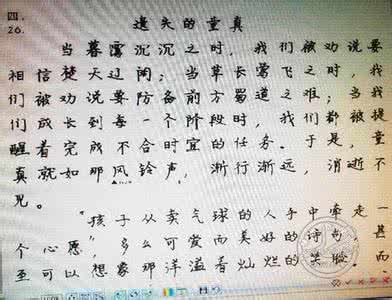 四.
26.
遗失的童真
当暮霭沉沉之时，我们被劝说要
相信楚天辽阔；当草长莺飞之时，我
们被劝说要防备前方蜀道之难；当我
们成长到每一个阶段时，我们都被提
醒着完成不合时宜的任务。于是，童
真就如那风铃声，渐行渐远，消逝不
见。
“孩子从卖气球的人手中牵走一
个心愿”，多么可爱而美好的诗句，甚而
至可以想象那洋溢着灿烂的笑脸。